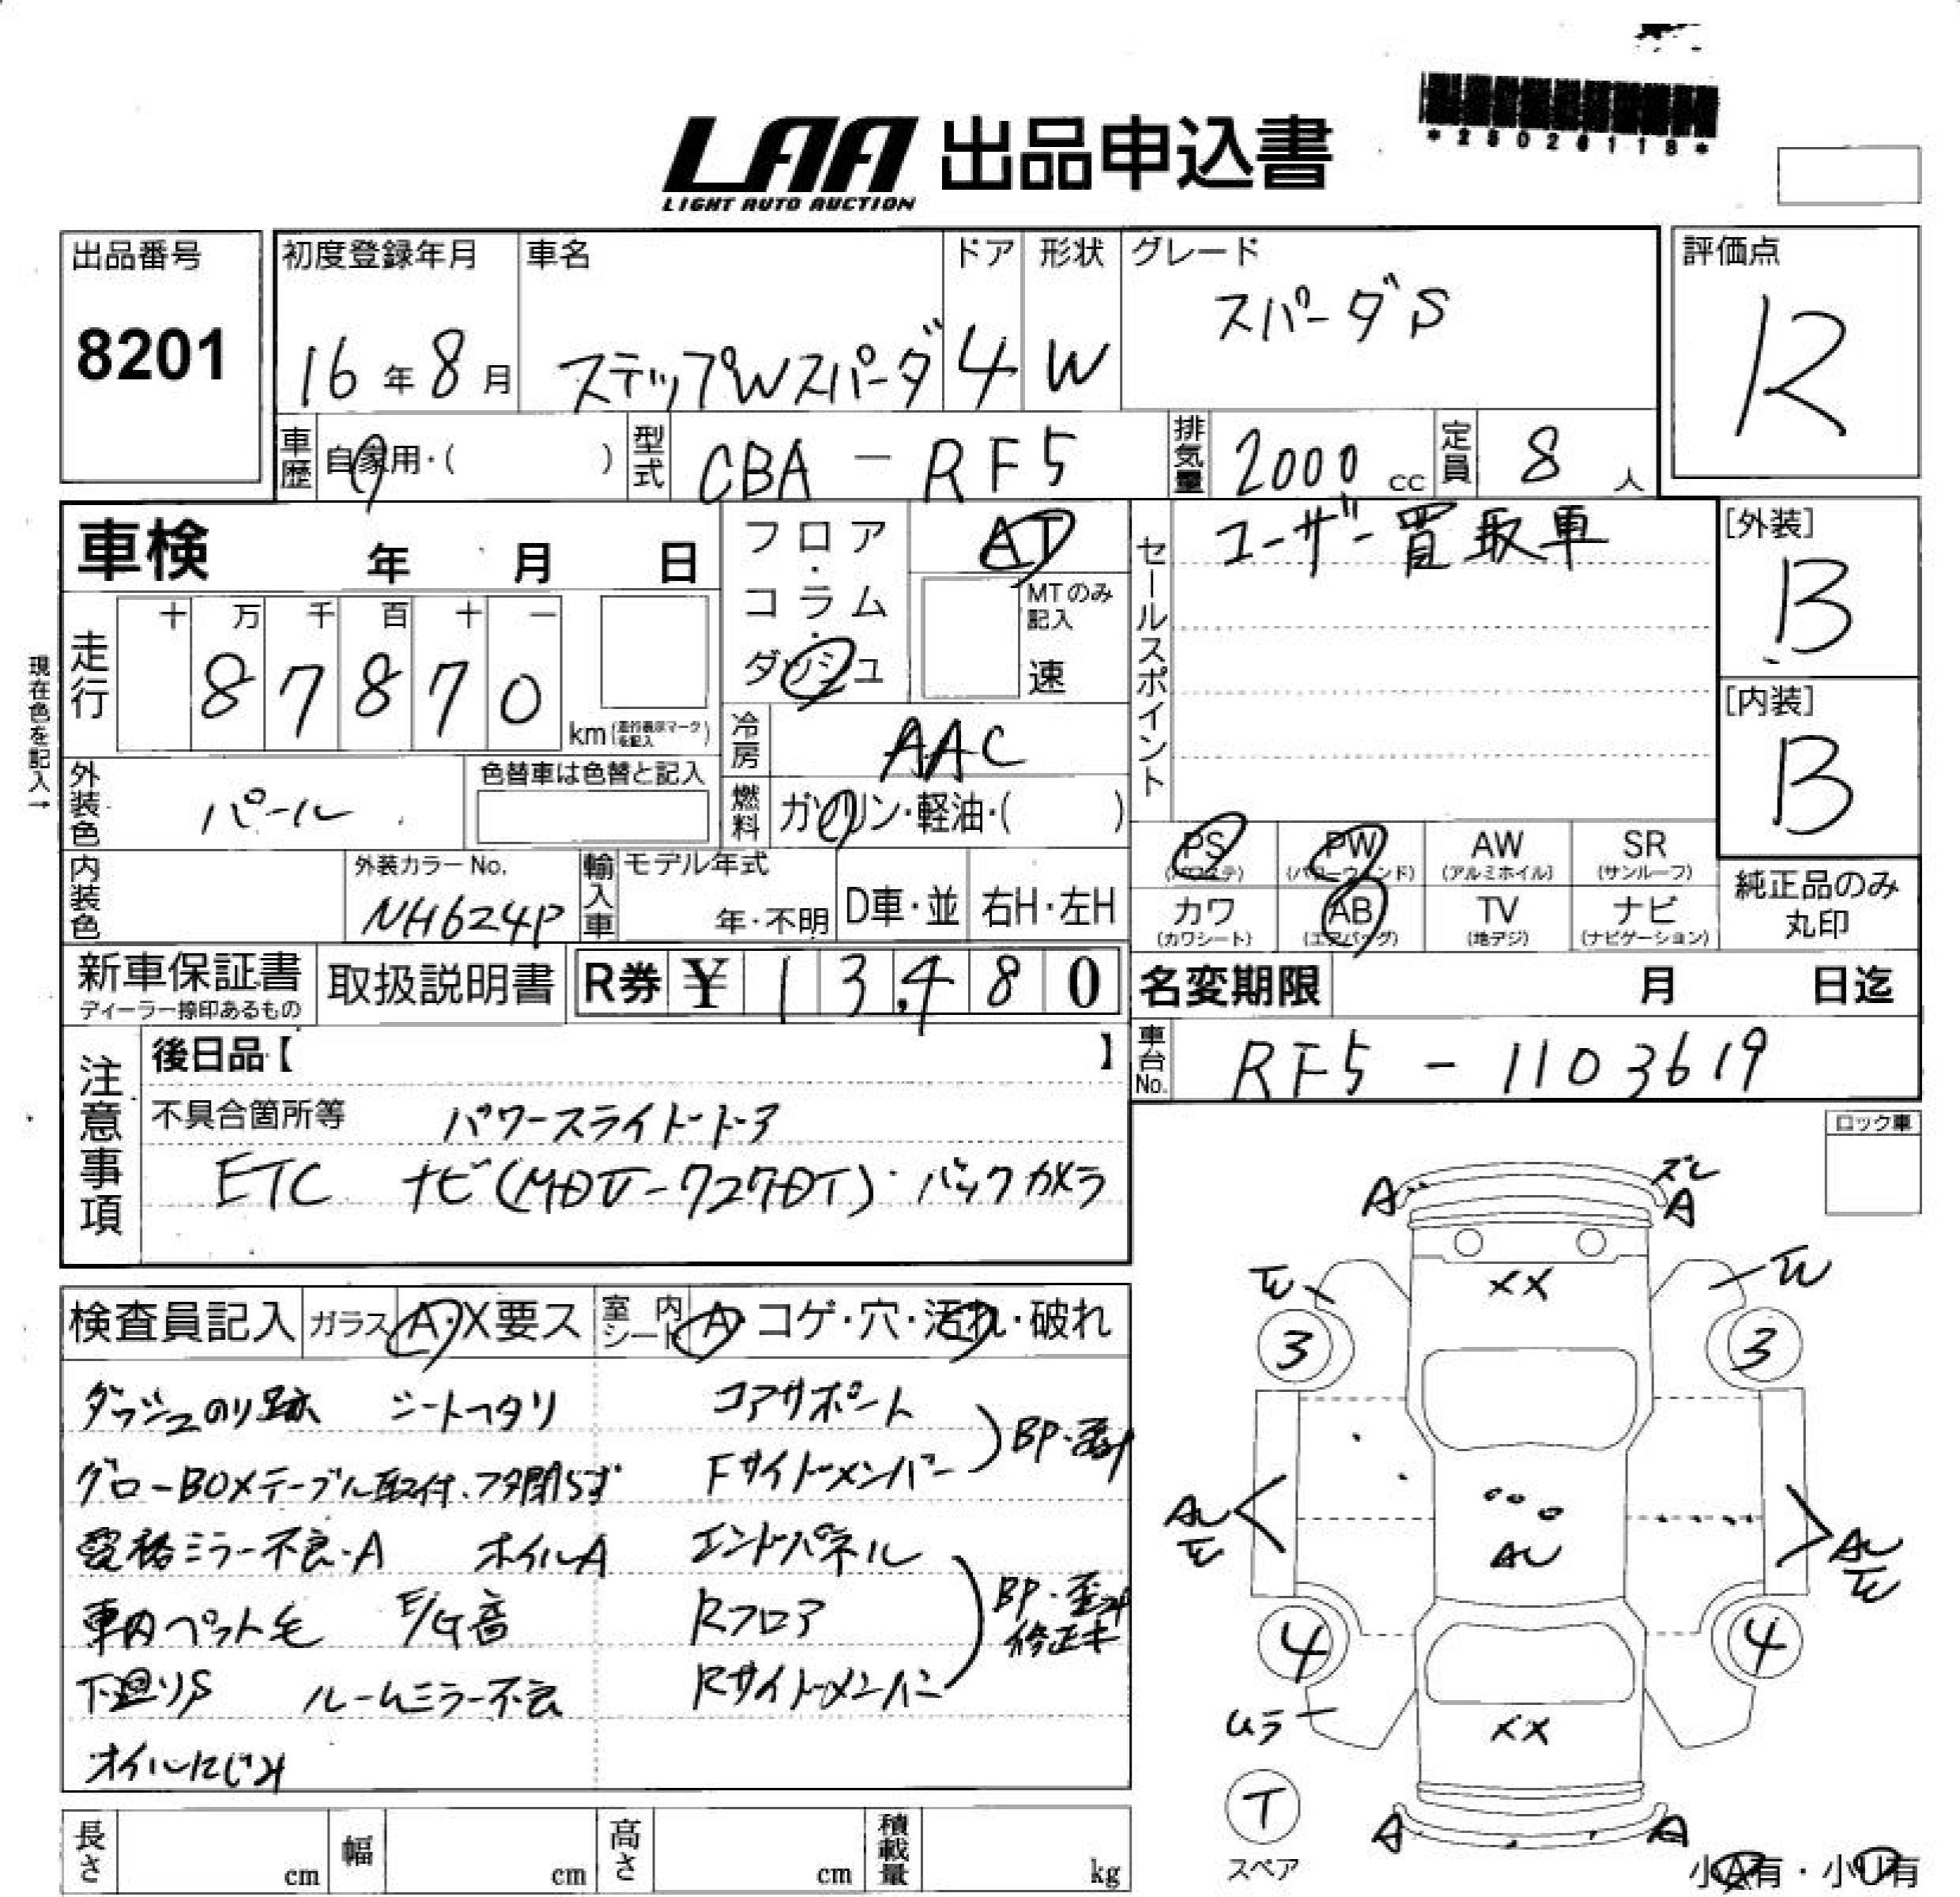 LAA 出品申込書
LIGHT AUTO AUCTION
出品番号
8201
初度登録年月
16年8月
車名
ステップWスパーダ
ドア
4
形状
W
グレード
スパーダS
評価点
R
車歴
自家用・( )
型式
CBA - RF5
排気量
2000 cc
定員
8 人
車検 年 月 日
フロア・コラム・ダッシュ
AT
MTのみ記入
速
セールスポイント
ユーザー買取車
[外装]
B
[内装]
B
現在色を記入→
走行
十 万 千 百 十 一
8 7 8 7 0
km(走行表示マークを記入)
冷房
AAC
外装色
パール
色替車は色替と記入
燃料
ガソリン・軽油・( )
内装色
外装カラーNo.
NH624P
輸入車
モデル年式
年・不明
D車・並
右H・左H
PS (パワステ)
PW (パワーウィンド)
AW (アルミホイル)
SR (サンルーフ)
カワ (カワシート)
AB (エアバッグ)
TV (地デジ)
ナビ (ナビゲーション)
純正品のみ
丸印
新車保証書
ディーラー捺印あるもの
取扱説明書
R券 ¥ 13,480
名変期限 月 日迄
車台No.
RF5 - 1103619
注意事項
後日品【 】
不具合箇所等 パワースライドドア
ETC ナビ(MDV-727DT)・バックカメラ
ロック車
検査員記入
ガラス A・X要ス
室内シート A・コゲ・穴・汚れ・破れ
ダッシュのり跡 シートヘタリ
コアサポート
Fサイドメンバー
BP・歪み
グローBOXテーブル取付、フタ閉らず
電格ミラー不良・A ホイルA
エンドパネル
車内ペット毛 E/G音
Rフロア
BP・歪み
修正キ
下廻りS ルームミラー不良
Rサイドメンバー
オイルにじみ
A
ズレ
A
XX
3
3
AU
AU
AU
4
4
ムラ
XX
T
スペア
A
A
小A有・小U有
長さ cm
幅 cm
高さ cm
積載量 kg